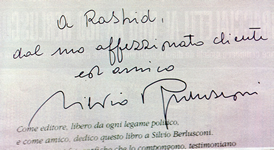 A Rashid,
dal suo affezionato cliente
ed amico
Silvio Berlusconi
Come editore, libero da ogni legame politico,
e come amico, dedico questo libro a Silvio Berlusconi.
che lo compongono, testimoniano